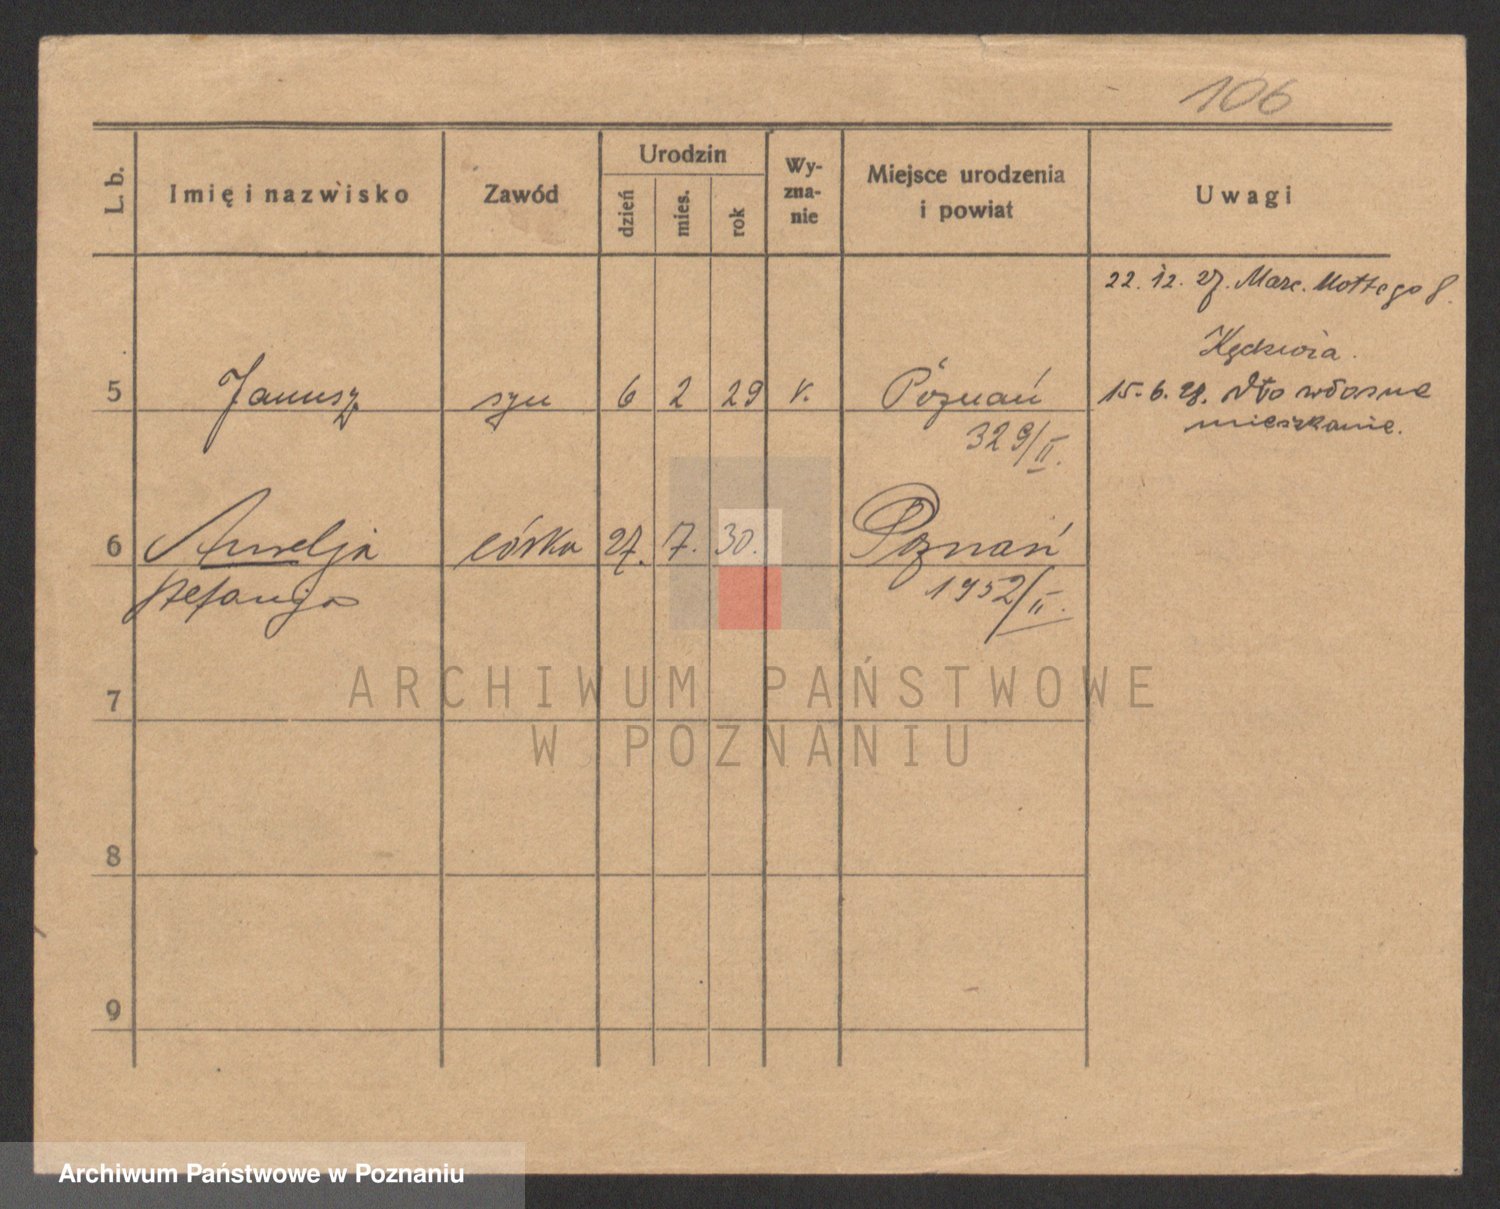 106
L. b.
Imię i nazwisko
Zawód
Urodzin
dzień
mies.
rok
Wy-
zna-
nie
Miejsce urodzenia
i powiat
Uwagi
22. 12. 27. Marc. Mottego 8.
5 Janusz syn 6 2 29 r. Poznań
329/II.
15. 6. 28. własne
mieszkanie.
6 Aurelja córka 27. 7. 30. Poznań
Stefanja
1952/II.
7
8
9
ARCHIWUM PAŃSTWOWE
W POZNANIU
Archiwum Państwowe w Poznaniu